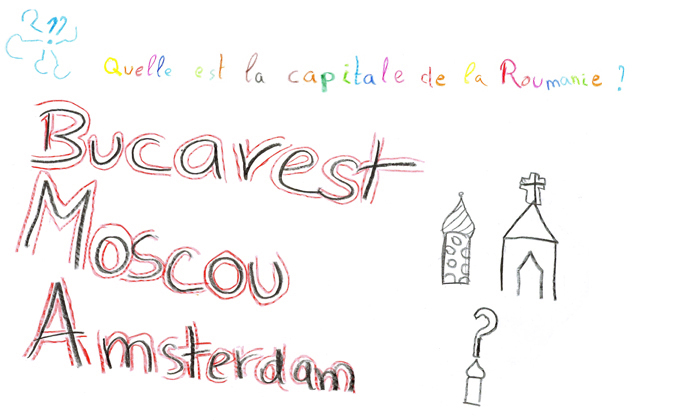 Quelle est la capitale de la Roumanie ?
Bucarest
Moscou
Amsterdam
?